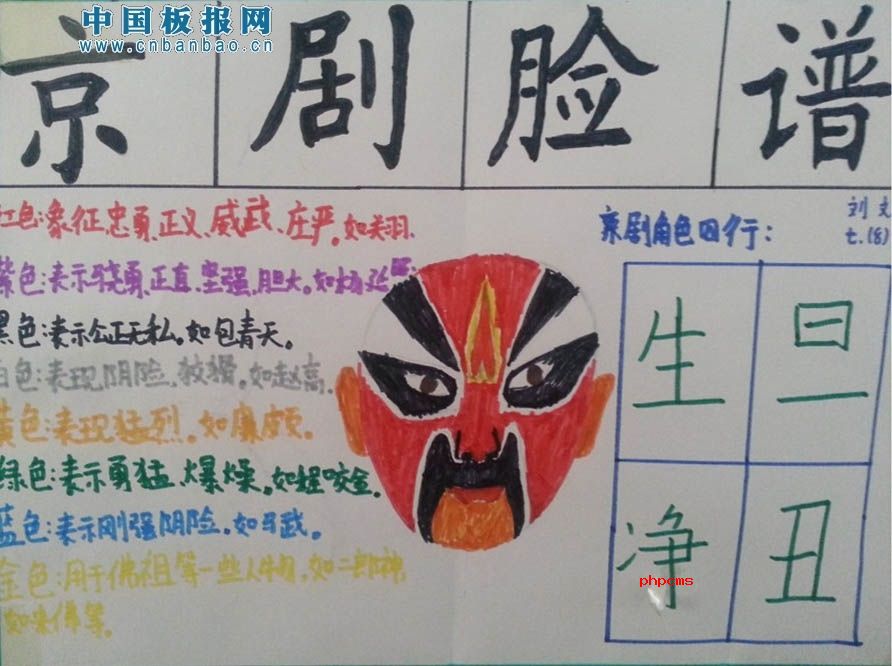 中国板报网
www.cnbanbao.cn
京剧脸谱
红色:象征忠勇、正义、威武、庄严。如关羽、
紫色:表示骁勇、正直、坚强、胆大。如
黑色:表示公正无私。如包青天。
白色:表现阴险、狡猾。如赵高。
黄色:表现猛烈。如廉颇。
绿色:表示勇猛、爆燥。如程咬金。
蓝色:表示刚强阴险。如
金色:用于佛祖等一些人物,如二郎神,
如来佛等。
京剧角色四行:
刘文
七.(8)
生 旦
净 丑
phpcms